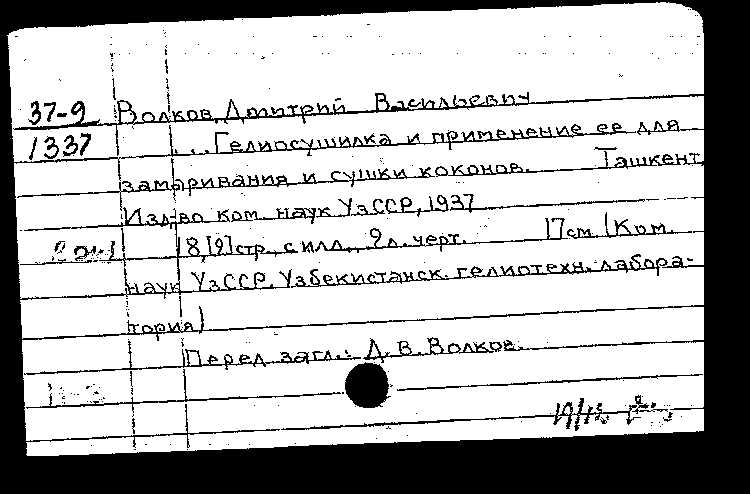 37-9 Волков, Дмитрий Васильевич
1337 ...Гелиосушилка и применение ее для
замаривания и сушки коконов. Ташкент,
Изд-во ком. наук УзССР, 1937
18,[2]стр. с илл., 2 л. черт. 17 см (Ком.
наук УзССР. Узбекистанск. гелиотехн. лабора-
тория)
Перед загл.: Д. В. Волков.